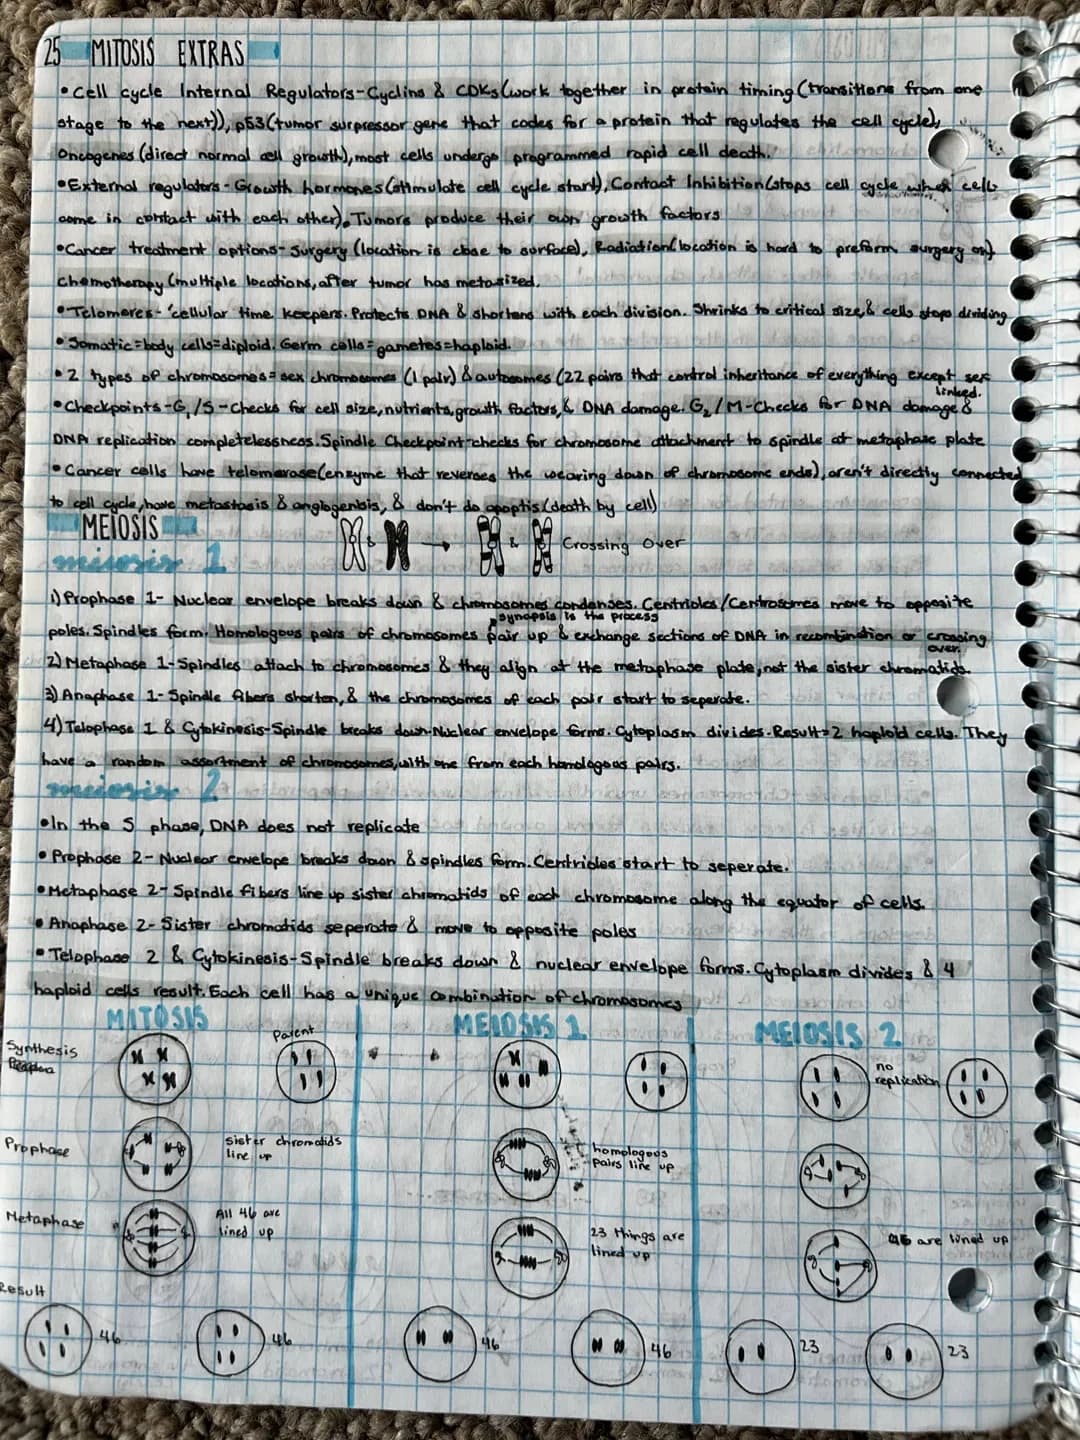 25 MITOSIS EXTRAS
• Cell cycle Internal Regulators-Cyclins & CDKs(work together in protein timing(transitions from one
stage to the next)), p53(tumor surpressor gene that codes for a protein that regulates the cell cycle),
Oncogenes(direct normal cell growth), most cells undergo programmed rapid cell death.
• External regulators-Growth hormones(stimulate cell cycle start), Contact Inhibition(stops cell cycle when cells
come in contact with each other). Tumors produce their own growth factors
• Cancer treatment options-Surgery (location is close to surface), Radiation(location is hard to preform surgery on)
chemotherapy (multiple locations, after tumor has metasized.
• Telomeres-'cellular time keepers. Protects DNA & shortens with each division. Shrinks to critical size, & cells stops dividing
• Somatic=body cells=diploid. Germ cells=gametes=haploid.
• 2 types of chromosomes=sex chromosomes (1 pair) & autosomes (22 pairs that control inheritance of everything except sex
linked.
• Checkpoints-G₁/S-Checks for cell size, nutrients, growth factors, & DNA damage. G₂/M-Checks for DNA damage &
DNA replication completelessness. Spindle Checkpoint-checks for chromosome attachment to spindle at metaphase plate
• Cancer cells have telomerase(enzyme that reverses the wearing down of chromosome ends), aren't directly connected
to cell cycle, have metastasis & angiogenbis, & don't do apoptis(death by cell)
MEIOSIS
& → & Crossing Over
meiosis 1
1) Prophase 1- Nuclear envelope breaks down & chromosomes condenses. Centrioles/Centrosomes move to opposite
synopsis is the process
poles. Spindles form. Homologous pairs of chromosomes pair up & exchange sections of DNA in recombination or crossing
over.
2) Metaphase 1-Spindles attach to chromosomes & they align at the metaphase plate, not the sister chromatids.
3) Anaphase 1-Spindle fibers shorten, & the chromosomes of each pair start to seperate.
4) Telophase 1 & Cytokinesis-Spindle breaks down. Nuclear envelope forms. Cytoplasm divides. Result=2 haploid cells. They
have a random assortment of chromosomes, with one from each homologous pairs.
meiosis 2
• In the S phase, DNA does not replicate
• Prophase 2-Nuclear envelope breaks down & spindles form. Centrioles start to seperate.
• Metaphase 2-Spindle fibers line up sister chromatids of each chromosome along the equator of cells.
• Anaphase 2-Sister chromatids seperate & move to opposite poles
• Telophase 2 & Cytokinesis-Spindle breaks down & nuclear envelope forms. Cytoplasm divides & 4
haploid cells result. Each cell has a unique combination of chromosomes
MITOSIS MEIOSIS 1 MEIOSIS 2
Synthesis
Parent
no
replication
Prophase
sister chromatids
line up
homologous
pairs line up
Metaphase
All 46 are
lined up
23 things are
lined up
46 are lined up
Result
46 46 46 46 23 23